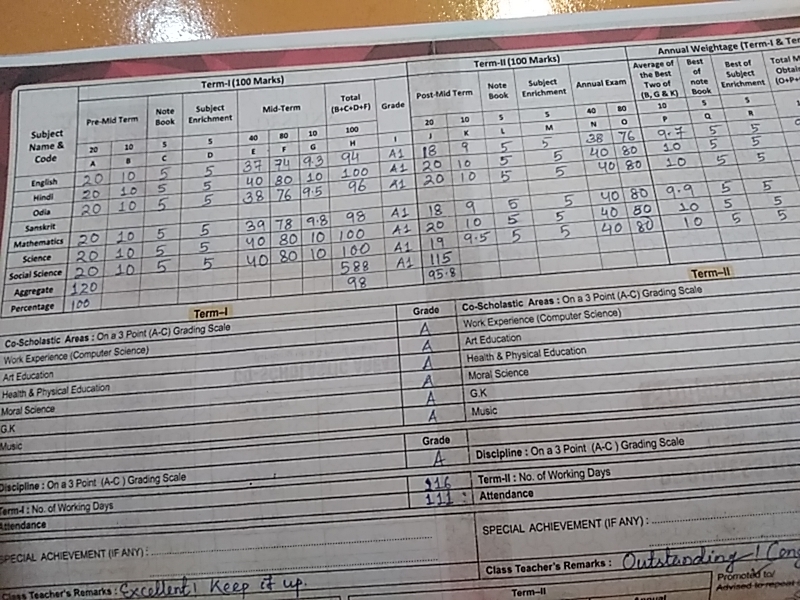 Term-I (100 Marks) Term-II (100 Marks) Annual Weightage (Term-I &
Subject Name & Code Pre-Mid Term Note Book Subject Enrichment Mid-Term Total (B+C+D+F) Grade Post-Mid Term Note Book Subject Enrichment Annual Exam Average of the Best Two of (B, G & K) Best of note Book Best of Subject Enrichment Total
20 10 5 5 40 80 10 100 20 10 5 5 40 80 10 5 5
A B C D E F G H I J K L M N O P Q R
English 20 10 5 5 37 74 9.3 94 A1 18 9 5 5 38 76 9.7 5 5
Hindi 20 10 5 5 40 80 10 100 A1 20 10 5 5 40 80 10 5 5
Odia 20 10 5 5 38 76 9.5 96 A1 20 10 5 5 40 80 10 5 5
Sanskrit
Mathematics 20 10 5 5 39 78 9.8 98 A1 18 9 5 5 40 80 9.9 5 5
Science 20 10 5 5 40 80 10 100 A1 20 10 5 5 40 80 10 5 5
Social Science 20 10 5 5 40 80 10 100 A1 19 9.5 5 5 40 80 10 5 5
Aggregate 120 588 A1 115
Percentage 100 98 95.8
Term–I
Co-Scholastic Areas : On a 3 Point (A-C) Grading Scale Grade
Work Experience (Computer Science) A
Art Education A
Health & Physical Education A
Moral Science A
G.K A
Music A
Grade
Discipline : On a 3 Point (A-C ) Grading Scale A
Term-I : No. of Working Days 116
Attendance 111
SPECIAL ACHIEVEMENT (IF ANY) :
Class Teacher's Remarks : Excellent! Keep it up.
Term–II
Co-Scholastic Areas : On a 3 Point (A-C) Grading Scale
Work Experience (Computer Science)
Art Education
Health & Physical Education
Moral Science
G.K
Music
Discipline : On a 3 Point (A-C ) Grading Scale
Term-II : No. of Working Days
Attendance
SPECIAL ACHIEVEMENT (IF ANY) :
Class Teacher's Remarks : Outstanding!
Term–II Promoted to/
Annual Advised to repeat